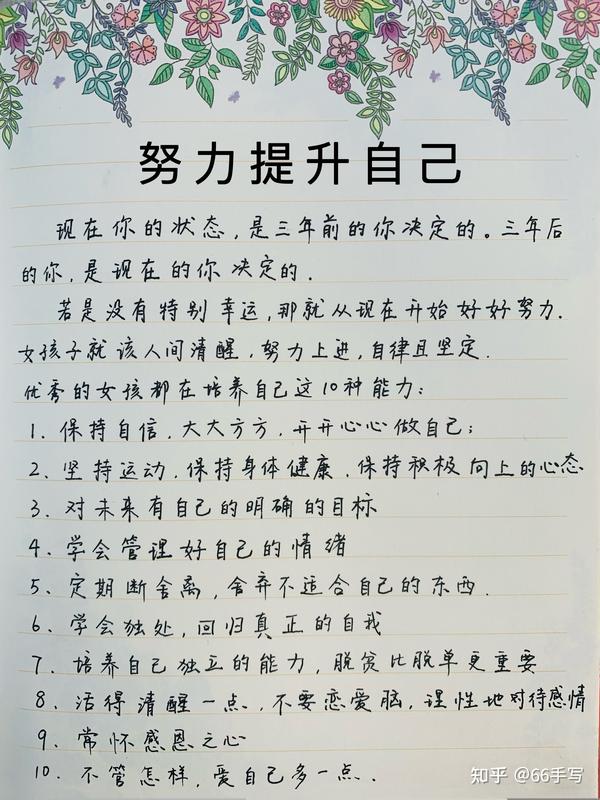 努力提升自己
现在你的状态,是三年前的你决定的。三年后
的你,是现在的你决定的.
若是没有特别幸运,那就从现在开始好好努力.
女孩子就该人间清醒,努力上进,自律且坚定.
优秀的女孩都在培养自己这10种能力:
1、保持自信,大大方方,开开心心做自己;
2、坚持运动,保持身体健康,保持积极向上的心态
3、对未来有自己的明确的目标
4、学会管理好自己的情绪
5、定期断舍离,舍弃不适合自己的东西.
6、学会独处,回归真正的自我
7、培养自己独立的能力,脱贫比脱单更重要
8、活得清醒一点,不要恋爱脑,理性地对待感情
9、常怀感恩之心
10、不管怎样,爱自己多一点.
知乎 @66手写